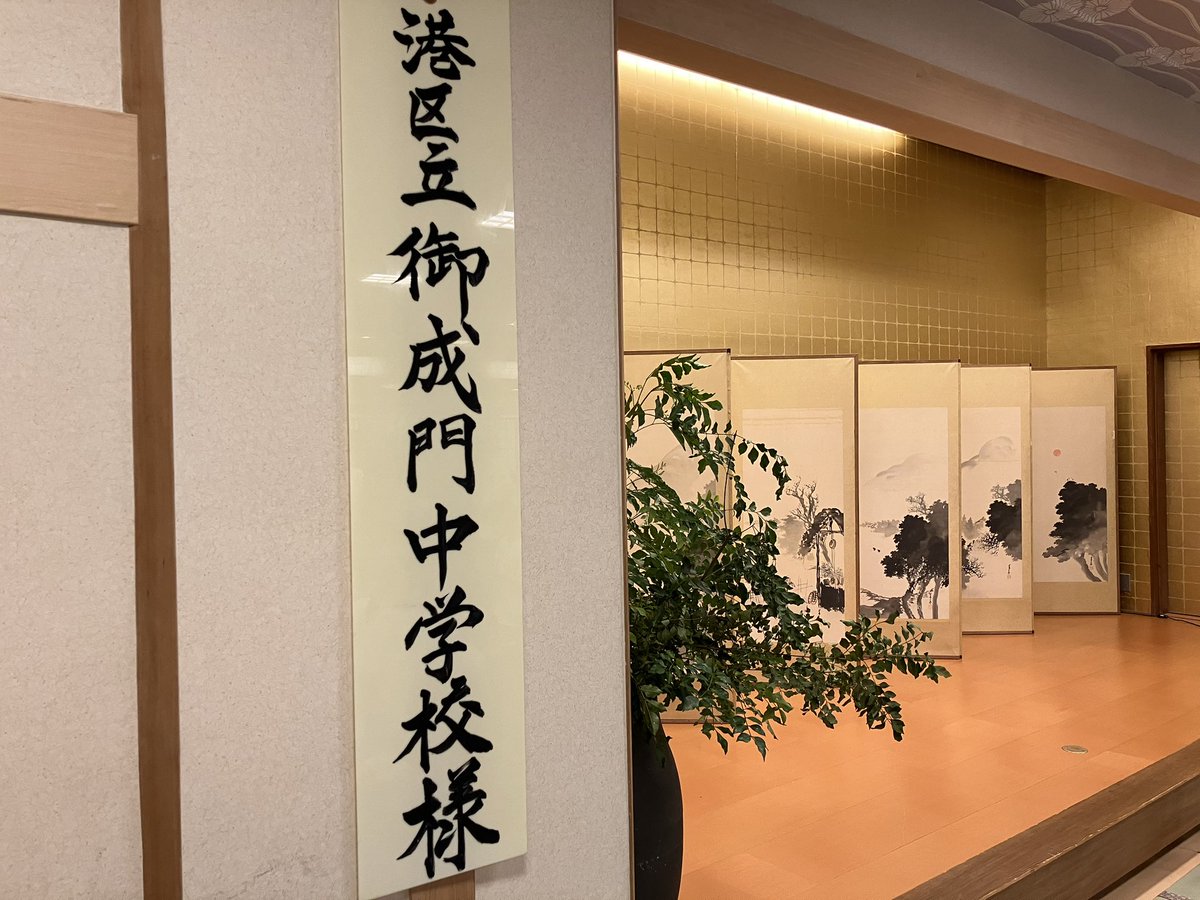 港区立御成門中学校様